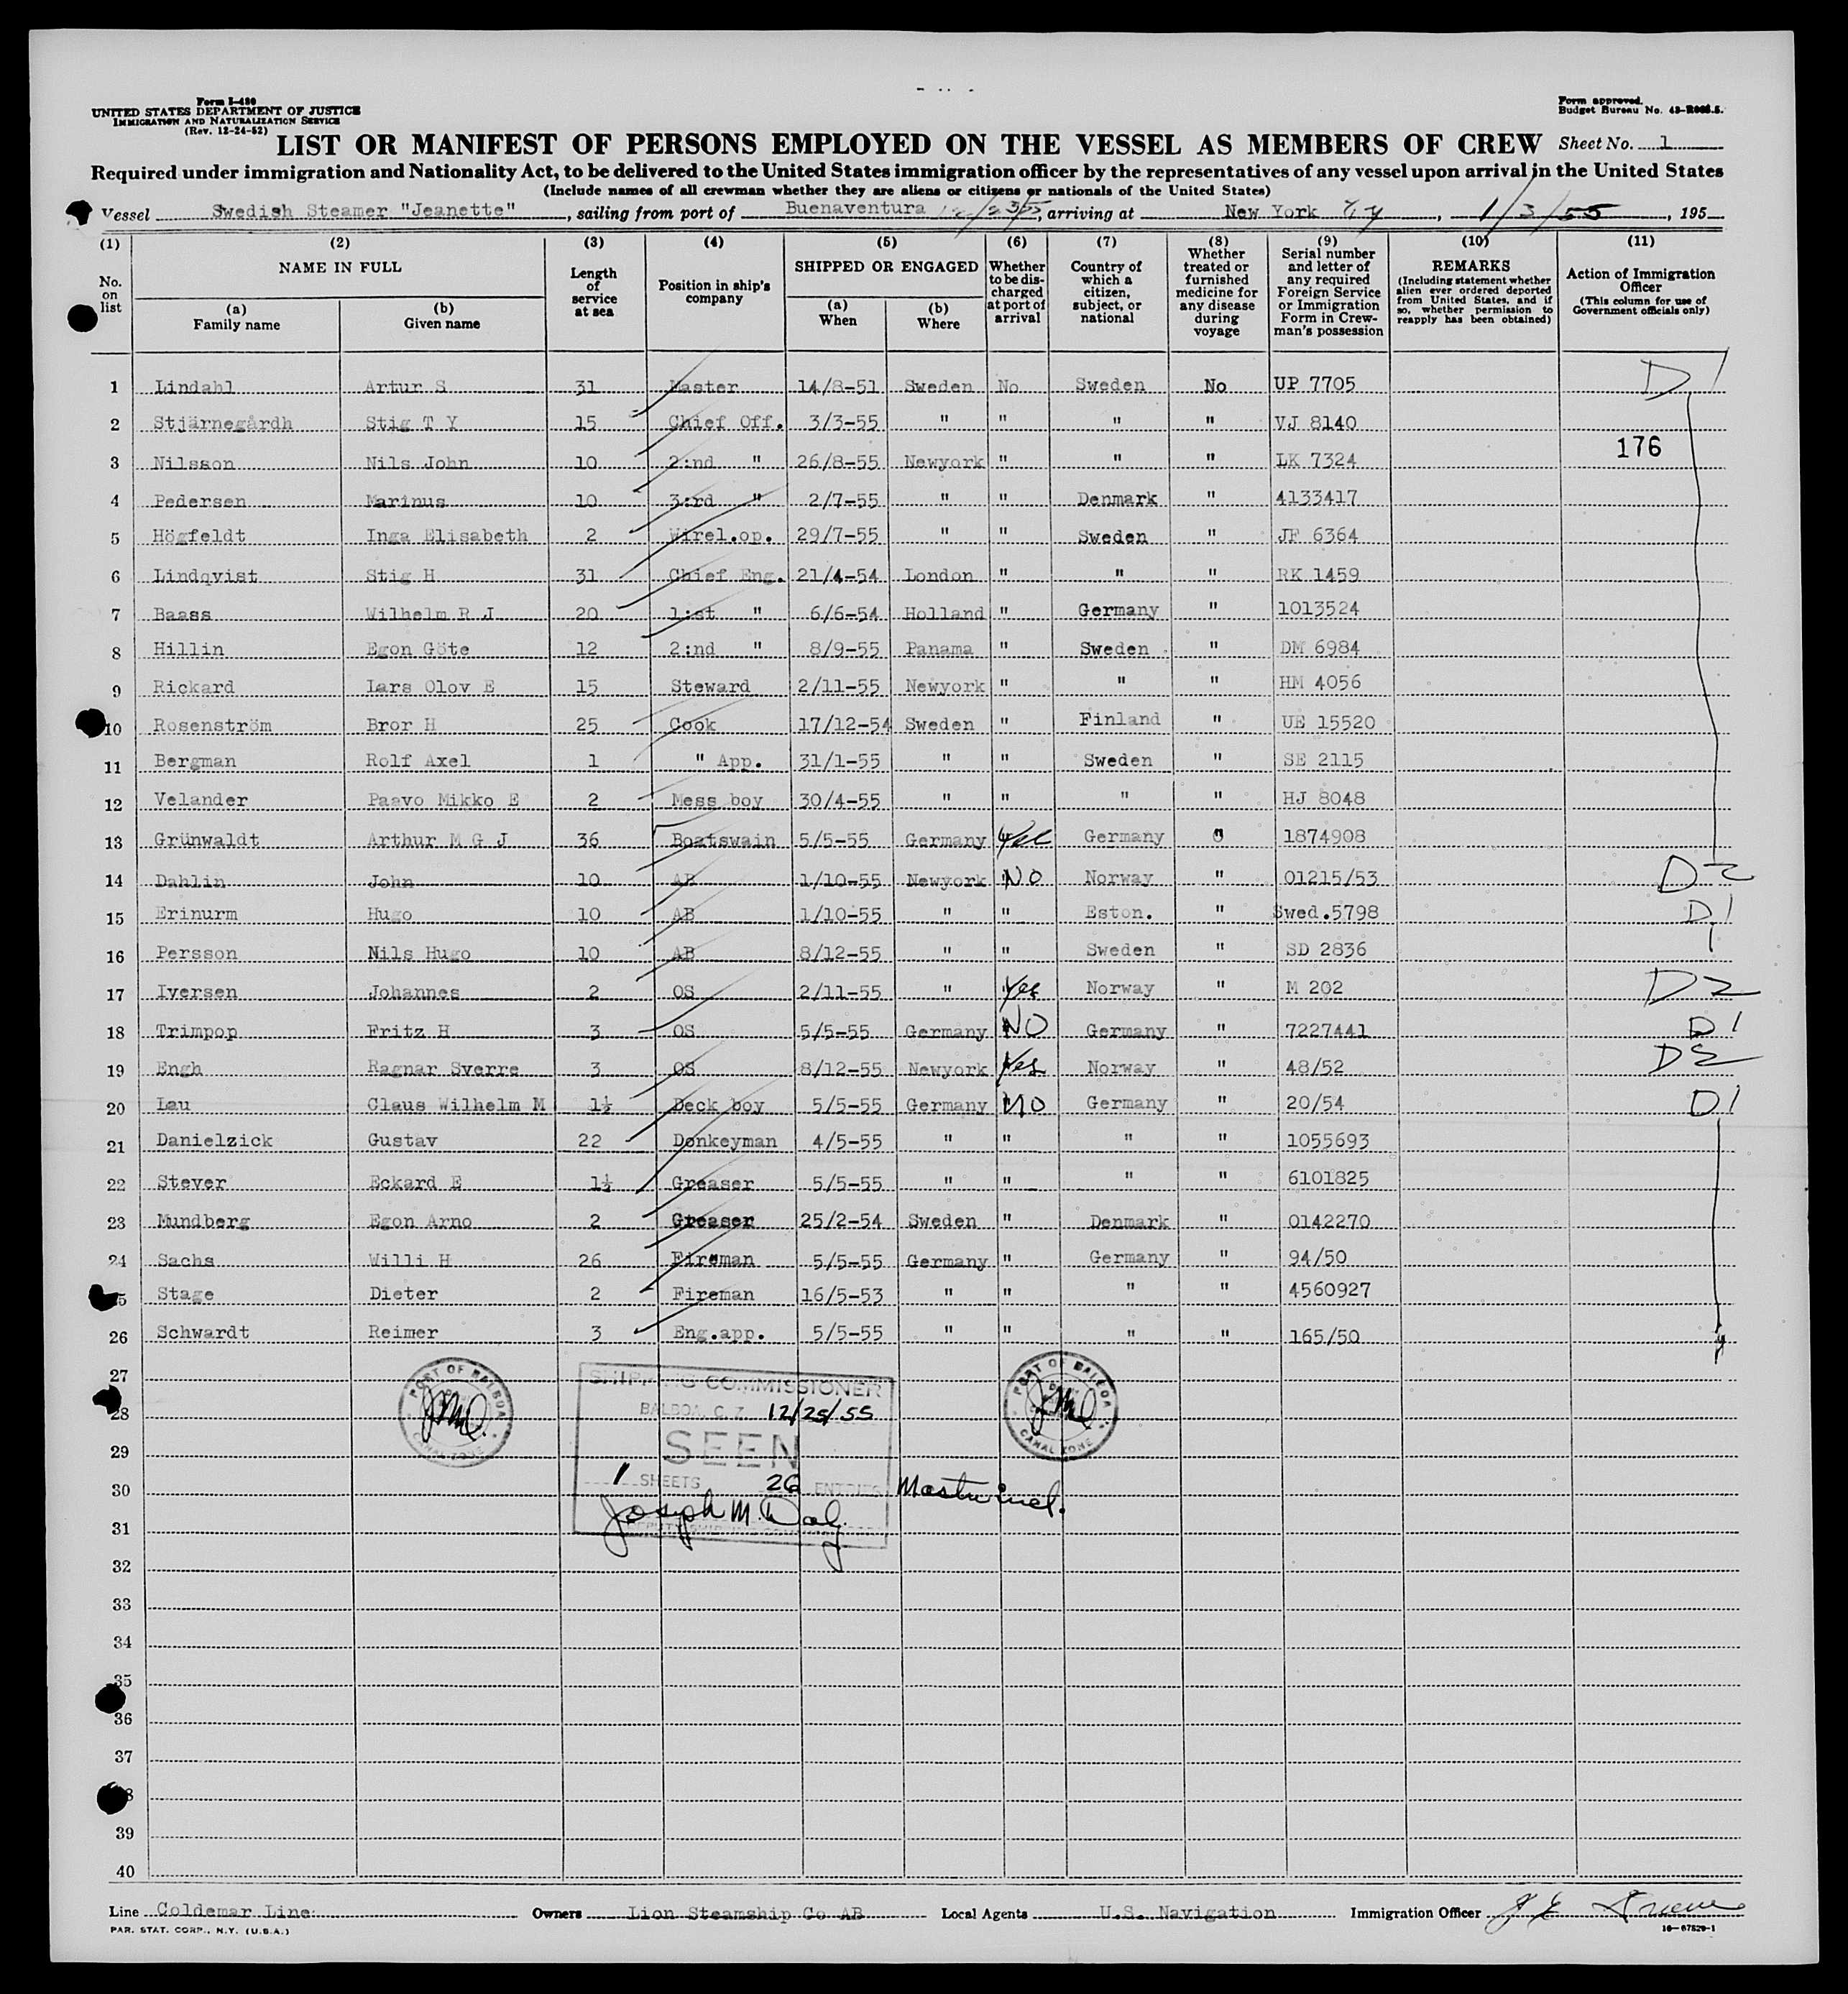 Form I-480
UNITED STATES DEPARTMENT OF JUSTICE
IMMIGRATION AND NATURALIZATION SERVICE
(Rev. 12-24-52)
Form approved.
Budget Bureau No. 43-R065.5.
LIST OR MANIFEST OF PERSONS EMPLOYED ON THE VESSEL AS MEMBERS OF CREW Sheet No. 1
Required under immigration and Nationality Act, to be delivered to the United States immigration officer by the representatives of any vessel upon arrival in the United States
(Include names of all crewman whether they are aliens or citizens or nationals of the United States)
Vessel Swedish Steamer "Jeanette", sailing from port of Buenaventura 12/23/55, arriving at New York, 1/3/55, 195
(1) No. on list
(2) NAME IN FULL
(a) Family name
(b) Given name
(3) Length of service at sea
(4) Position in ship's company
(5) SHIPPED OR ENGAGED
(a) When
(b) Where
(6) Whether to be discharged at port of arrival
(7) Country of which a citizen, subject, or national
(8) Whether treated or furnished medicine for any disease during voyage
(9) Serial number and letter of any required Foreign Service or Immigration Form in Crewman's possession
(10) REMARKS (Including statement whether alien ever ordered deported from United States, and if so, whether permission to reapply has been obtained)
(11) Action of Immigration Officer (This column for use of Government officials only)
1 Lindahl Artur S 31 Master 14/8-51 Sweden No Sweden No UP 7705 D 1
2 Stjärnegårdh Stig T Y 15 Chief Off. 3/3-55 " " " " VJ 8140
176
3 Nilsson Nils John 10 2:nd " 26/8-55 Newyork " " " LK 7324
4 Pedersen Marinus 10 3:rd " 2/7-55 " " Denmark " 4133417
5 Högfeldt Inga Elisabeth 2 Wirel.op. 29/7-55 " " Sweden " JF 6364
6 Lindqvist Stig H 31 Chief Eng. 21/4-54 London " " " RK 1459
7 Baass Wilhelm R J 20 1:st " 6/6-54 Holland " Germany " 1013524
8 Hillin Egon Göte 12 2:nd " 8/9-55 Panama " Sweden " DM 6984
9 Rickard Lars Olov E 15 Steward 2/11-55 Newyork " " " HM 4056
10 Rosenström Bror H 25 Cook 17/12-54 Sweden " Finland " UE 15520
11 Bergman Rolf Axel 1 " App. 31/1-55 " " Sweden " SE 2115
12 Velander Paavo Mikko E 2 Mess boy 30/4-55 " " " " HJ 8048
13 Grünwaldt Arthur M G J 36 Boatswain 5/5-55 Germany Yes Germany " 1874908
14 Dahlin John 10 AB 1/10-55 Newyork NO Norway " 01215/53 D 2
15 Erinurm Hugo 10 AB 1/10-55 " " Eston. " Swed.5798 D 1
16 Persson Nils Hugo 10 AB 8/12-55 " " Sweden " SD 2836
17 Iversen Johannes 2 OS 2/11-55 " Yes Norway " M 202 D 2
18 Trimpop Fritz H 3 OS 5/5-55 Germany NO Germany " 7227441 D 1
19 Engh Ragnar Sverre 3 OS 8/12-55 Newyork Yes Norway " 48/52 D 2
20 Lau Claus Wilhelm M 1½ Deck boy 5/5-55 Germany NO Germany " 20/54 D 1
21 Danielzick Gustav 22 Donkeyman 4/5-55 " " " " 1055693
22 Stever Eckard E 1½ Greaser 5/5-55 " " " " 6101825
23 Mundberg Egon Arno 2 Greaser 25/2-54 Sweden " Denmark " 0142270
24 Sachs Willi H 26 Fireman 5/5-55 Germany " Germany " 94/50
25 Stage Dieter 2 Fireman 16/5-53 " " " " 4560927
26 Schwardt Reimer 3 Eng.app. 5/5-55 " " " " 165/50
27
PORT OF BALBOA
CANAL ZONE
SHIPPING COMMISSIONER
BALBOA, C. Z. 12/25/55
SEEN
1 SHEETS 26 ENTRIES Master incl.
Joseph M. Daly
DEPUTY SHIPPING COMMISSIONER
PORT OF BALBOA
CANAL ZONE
28
29
30
31
32
33
34
35
36
37
38
39
40
Line Coldemar Line Owners Lion Steamship Co AB Local Agents U.S. Navigation Immigration Officer
PAR. STAT. CORP., N.Y. (U.S.A.)
16-67529-1